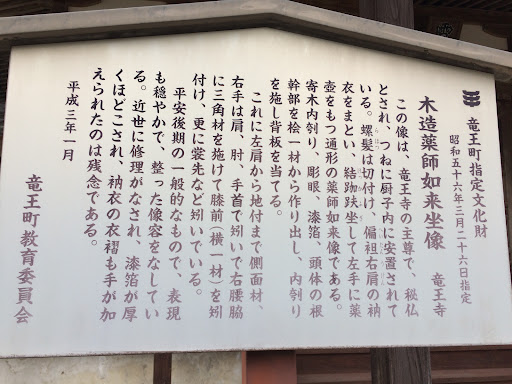 竜王町指定文化財
昭和五十六年三月二十六日指定
木造薬師如来坐像
竜王寺
この像は、竜王寺の主尊で、秘仏
とされ、つねに厨子内に安置されて
いる。螺髪は切付け、偏袒右肩の衲
衣をまとい、結跏趺坐して左手に薬
壺をもつ通形の薬師如来像である。
寄木内刳り、彫眼、漆箔、頭体の根
幹部を桧一材から作り出し、内刳り
を施し背板を当てる。
これに左肩から地付まで側面材、
右手は肩、肘、手首で矧いで右腰脇
に三角材を施けて膝前（横一材）を矧
付け、更に裳先など矧いでいる。
平安後期の一般的なもので、表現
も穏やかで、整った像容をなしてい
る。近世に修理がなされ、漆箔が厚
くほどこされ、衲衣の衣褶も手が加
えられたのは残念である。
平成三年一月
竜王町教育委員会